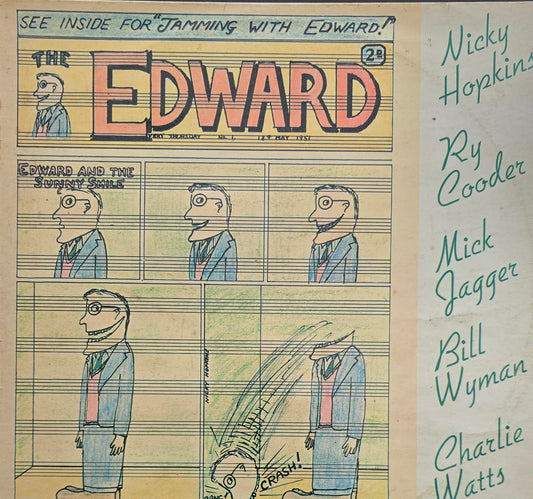 SEE INSIDE FOR "JAMMING WITH EDWARD!"
THE
EDWARD
2D
EVERY THURSDAY No 1. 18T MAY 1961
EDWARD AND THE
SUNNY SMILE
NICKY HOPKINS
BANG!
CRASH!
Nicky
Hopkins
Ry
Cooder
Mick
Jagger
Bill
Wyman
Charlie
Watts